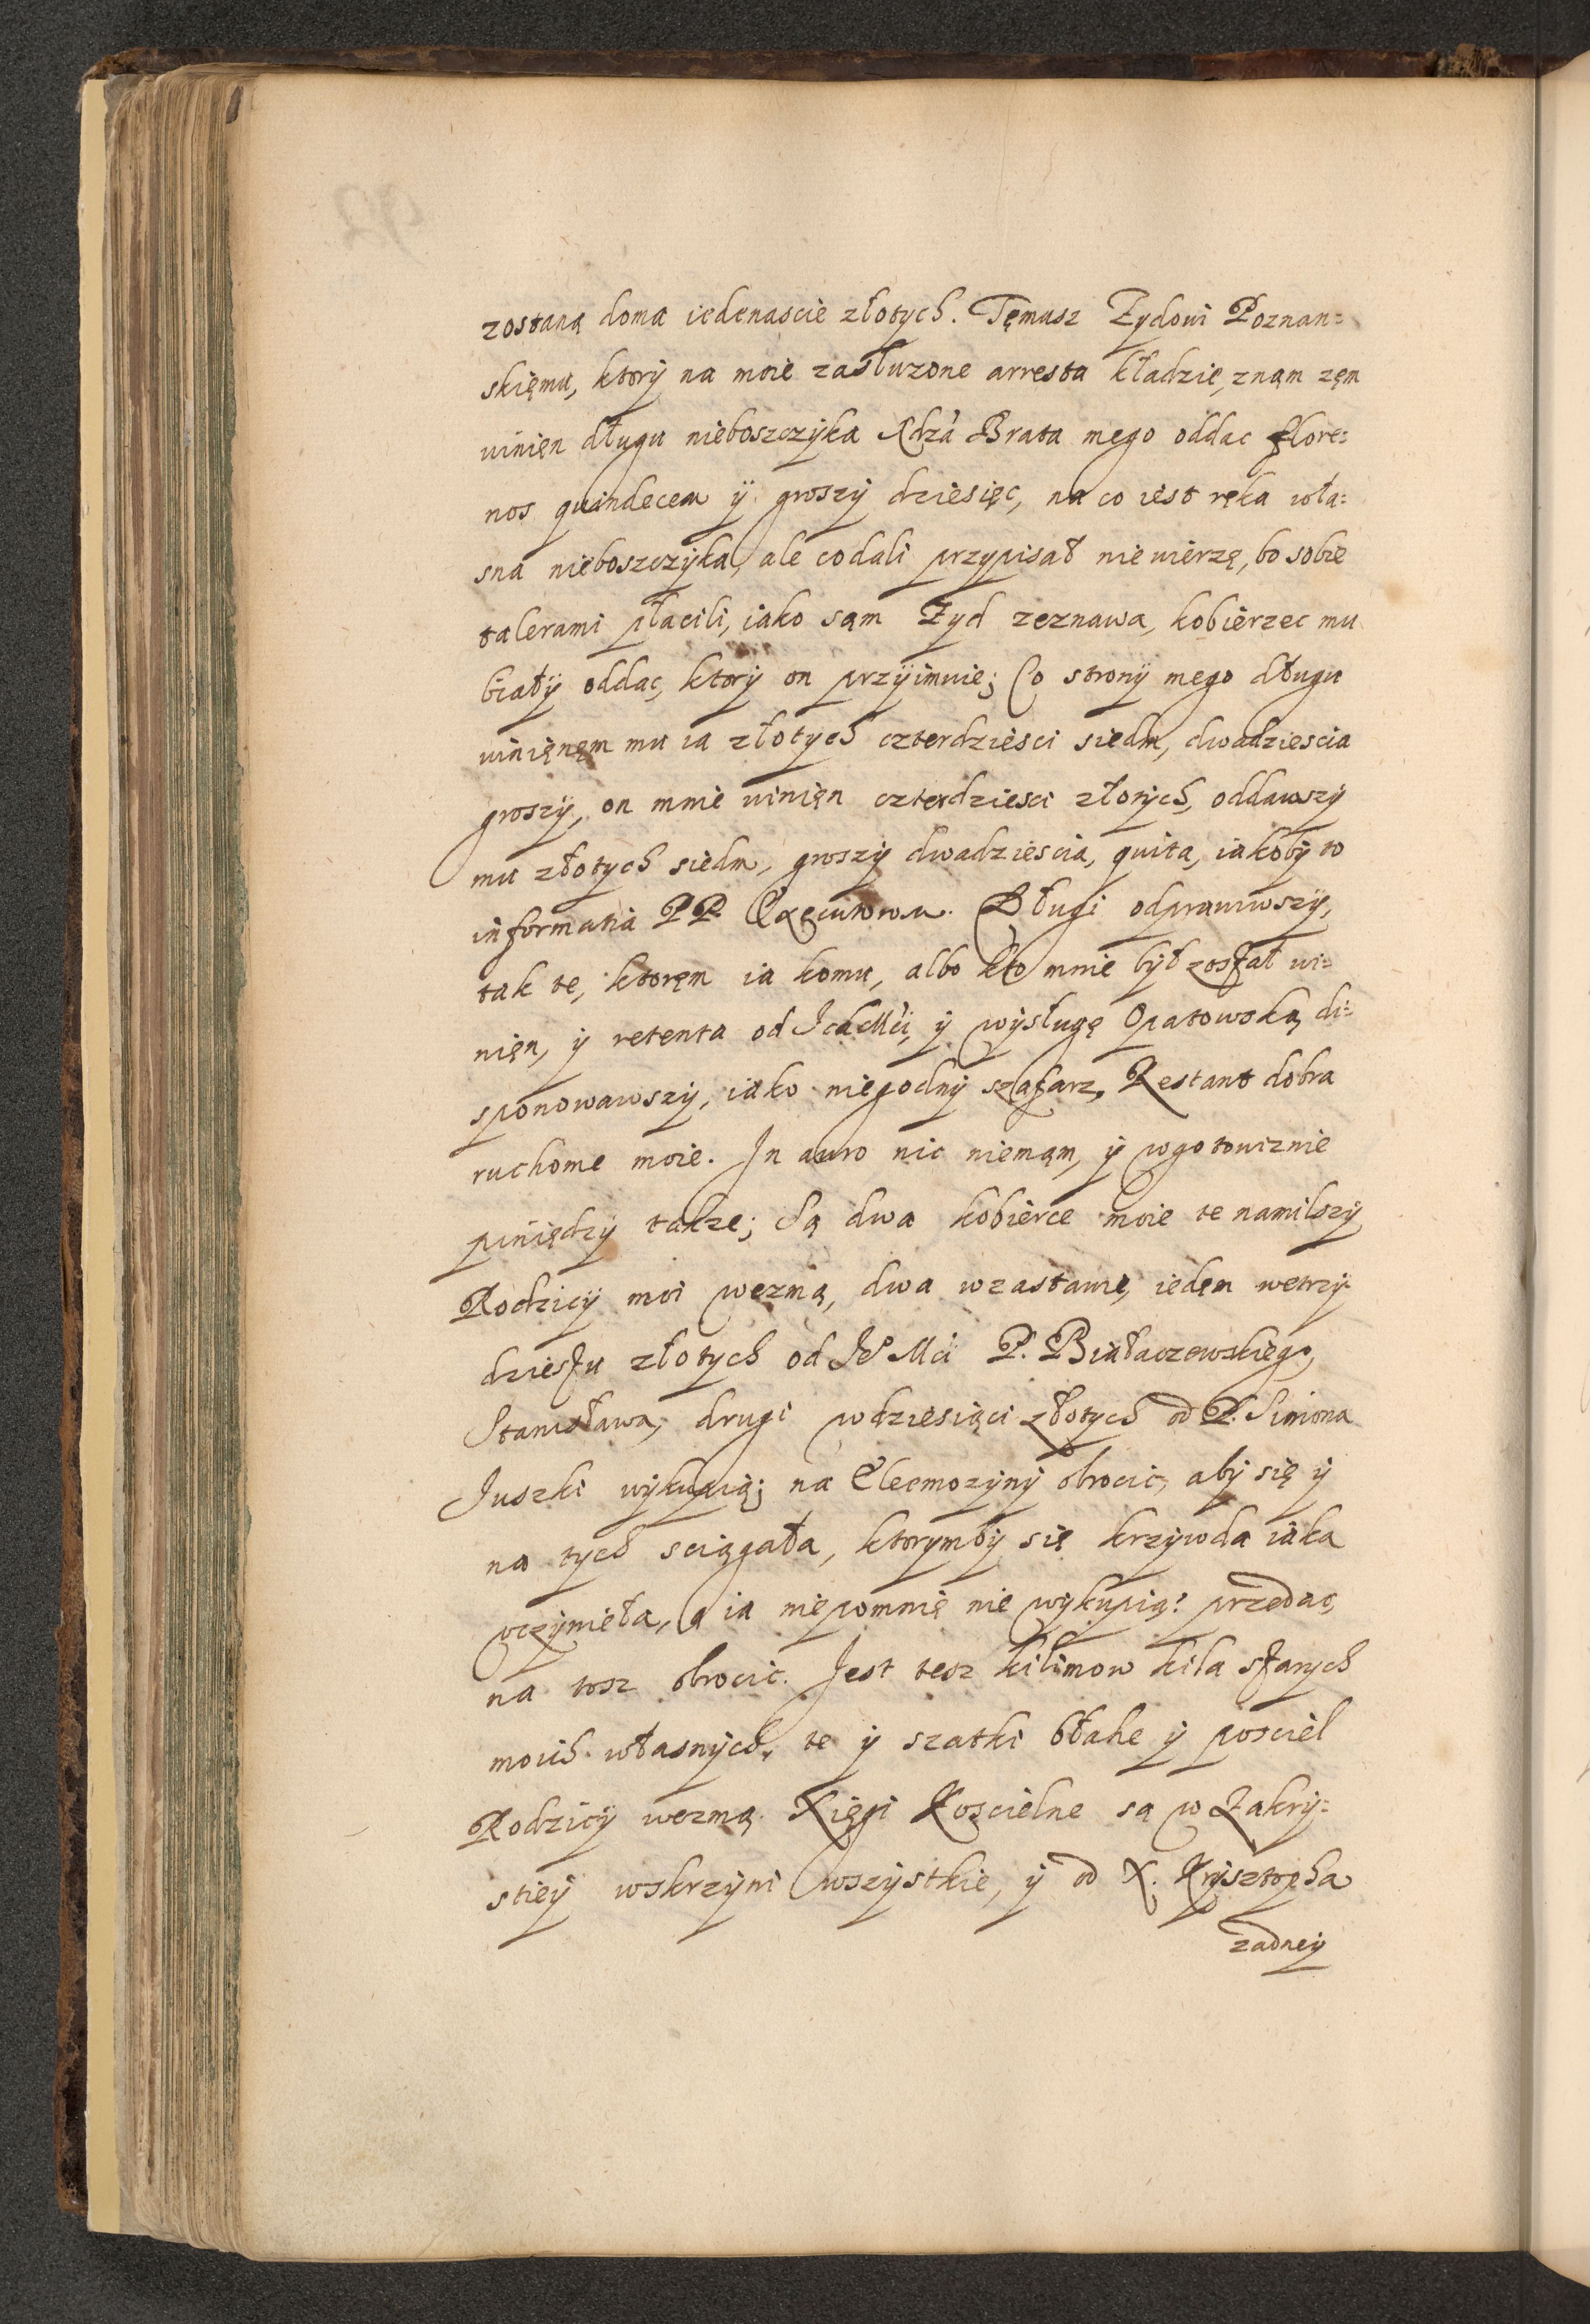 zostaną doma iedenascie złotych. Tęmusz Zydowi Poznan=
skięmu, ktory na moie zasłuzone arresta kładzie, znąm zęm
winięn długu nieboszczyka Xdza Brata mego oddac flore=
nos quindecem y groszy dziesięc, na co iest ręka wła=
sna nieboszczyka, ale co dali przypisał nie wierzę, bo sobie
talerami płacili, iako sąm Zyd zeznawa, kobierzec mu
biały oddac, ktory on przyimuie; Co strony mego długu
winięnęm mu ia złotych czterdziesci siedm, dwadziescia
groszy, on mnie winięn czterdziesci złotych, oddawszy
mu złotych siedm, groszy dwadziescia, quita, iakoby to
informatia PP. Exęcutorom. Długi odprawiwszy,
tak te, ktoręm ia komu, albo kto mnie był został wi=
nięn, y retenta od Ich Mci, y wysługę Opatowską di=
sponowawszy, iako niegodny szafarz, Restant dobra
ruchome moie. In auro nic niemąm, y w gotowiznie
piniędzy takze; Są dwa kobierce moie te namilszy
Rodzicy moi wezmą, dwa w zastawie, iedęn we trzy
dziestu złotych od Je Mci P. Białaczewskiego,
Stanisława, drugi w dziesiąci złotych od P. Simona
Iuszki wykupią; na Eleemozyny obrocic, aby się y
na tych sciągała, ktorymby się krzywda iaka
uczynieła, a ia niepomnię nie wykupią: przedac,
na tosz obrocic. Jest tesz kilimow kila starych
moich własnych, te y szatki błahe y posciel
Rodzicy wezmą. Xięgi Koscielne są w Zakry=
stiey w skrzyni wszystkie, y od X. Krysztopha
zadney